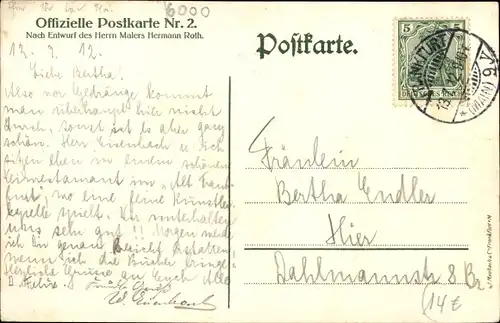 6000
Offizielle Postkarte Nr. 2.
Nach Entwurf des Herrn Malers Hermann Roth.
Postkarte.
5 5
DEUTSCHES REICH
FRANKFURT
(MAIN) 9
12. 9. 12.
Liebe Bertha!
Also vor Gedränge kommt
man überhaupt hier nicht
durch, sonst ist es aber ganz
schön. Herr Eisenbach u ich
sitzen eben in einem schönen
im "Alt Frank
furt", wo eine feine Künstler
kapelle spielt. Wir unterhalten
uns sehr gut!! Morgen werde
ich Dir genau Bericht erstatten,
wenn ich die Bücher bringe.
Herzliche Grüsse an Euch Alle
Felix.
Fräulein
Bertha Endler
Hier
Dahlmannstr 8
14€